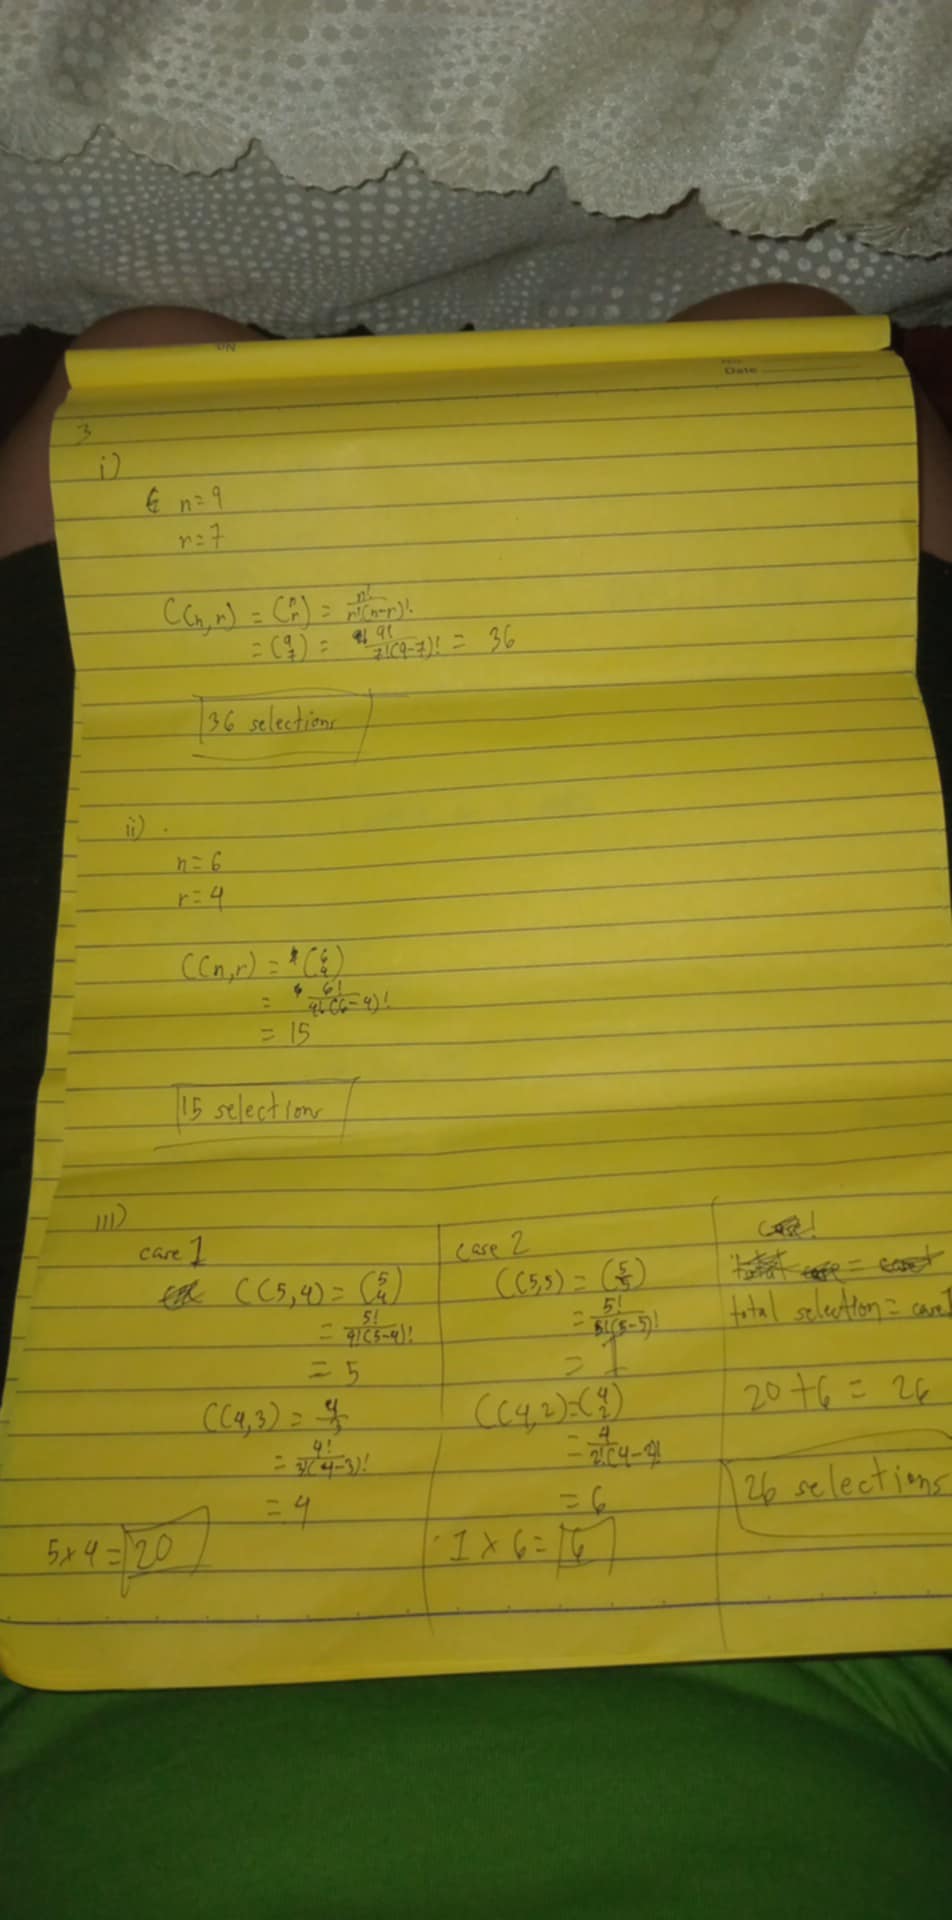 Date
3
i)
n=9
r=7
C(n,r) = (n r) = n!/r!(n-r)!
= (9 7) = 9!/7!(9-7)! = 36
36 selections
ii)
n=6
r=4
C(n,r) = (6 4)
= 6!/4!(6-4)!
= 15
15 selections
iii)
case 1
C(5,4) = (5 4)
= 5!/4!(5-4)!
= 5
C(4,3) = 4/3
= 4!/3!(4-3)!
= 4
5x4 = 20
case 2
C(5,5) = (5 5)
= 5!/5!(5-5)!
= 1
C(4,2) = (4 2)
= 4/2!(4-2)!
= 6
1 x 6 = 6
total selection = case
20 + 6 = 26
26 selections